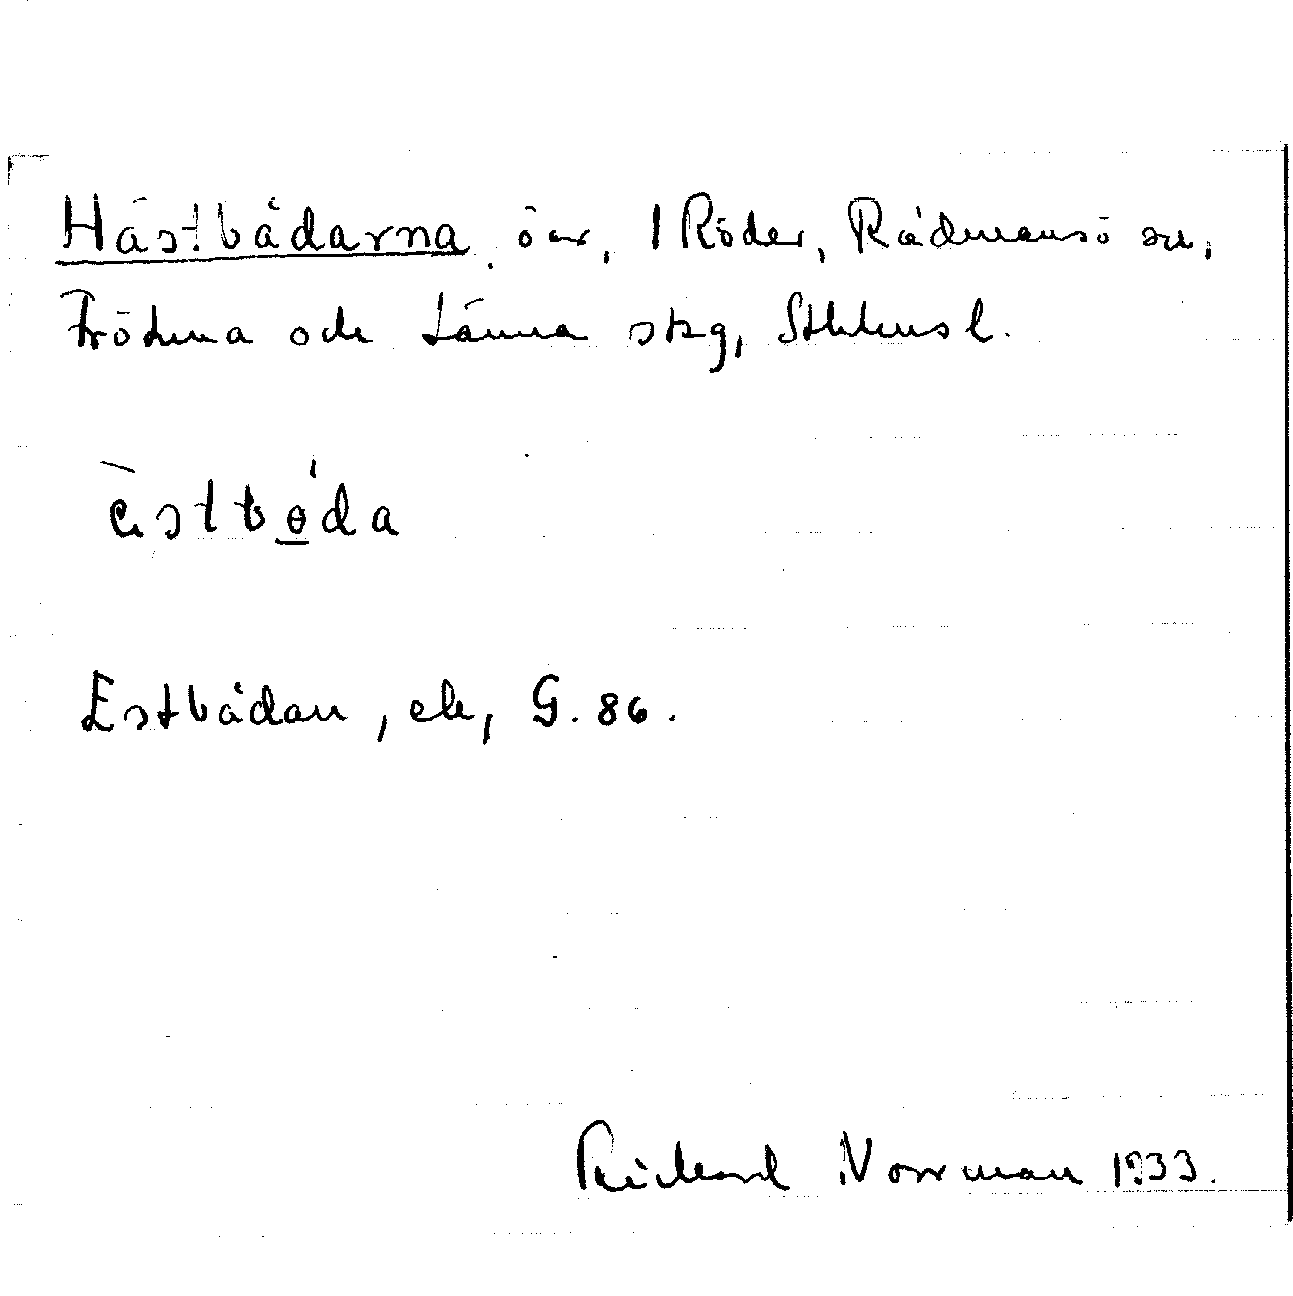 Hästbådarna, öar, I Röder, Rådmansö sn,
Frötuna och Länna skg, Sthlms l.
èstbøda
Estbådan, ek, G. 86.
Rickard Norrman 1933.